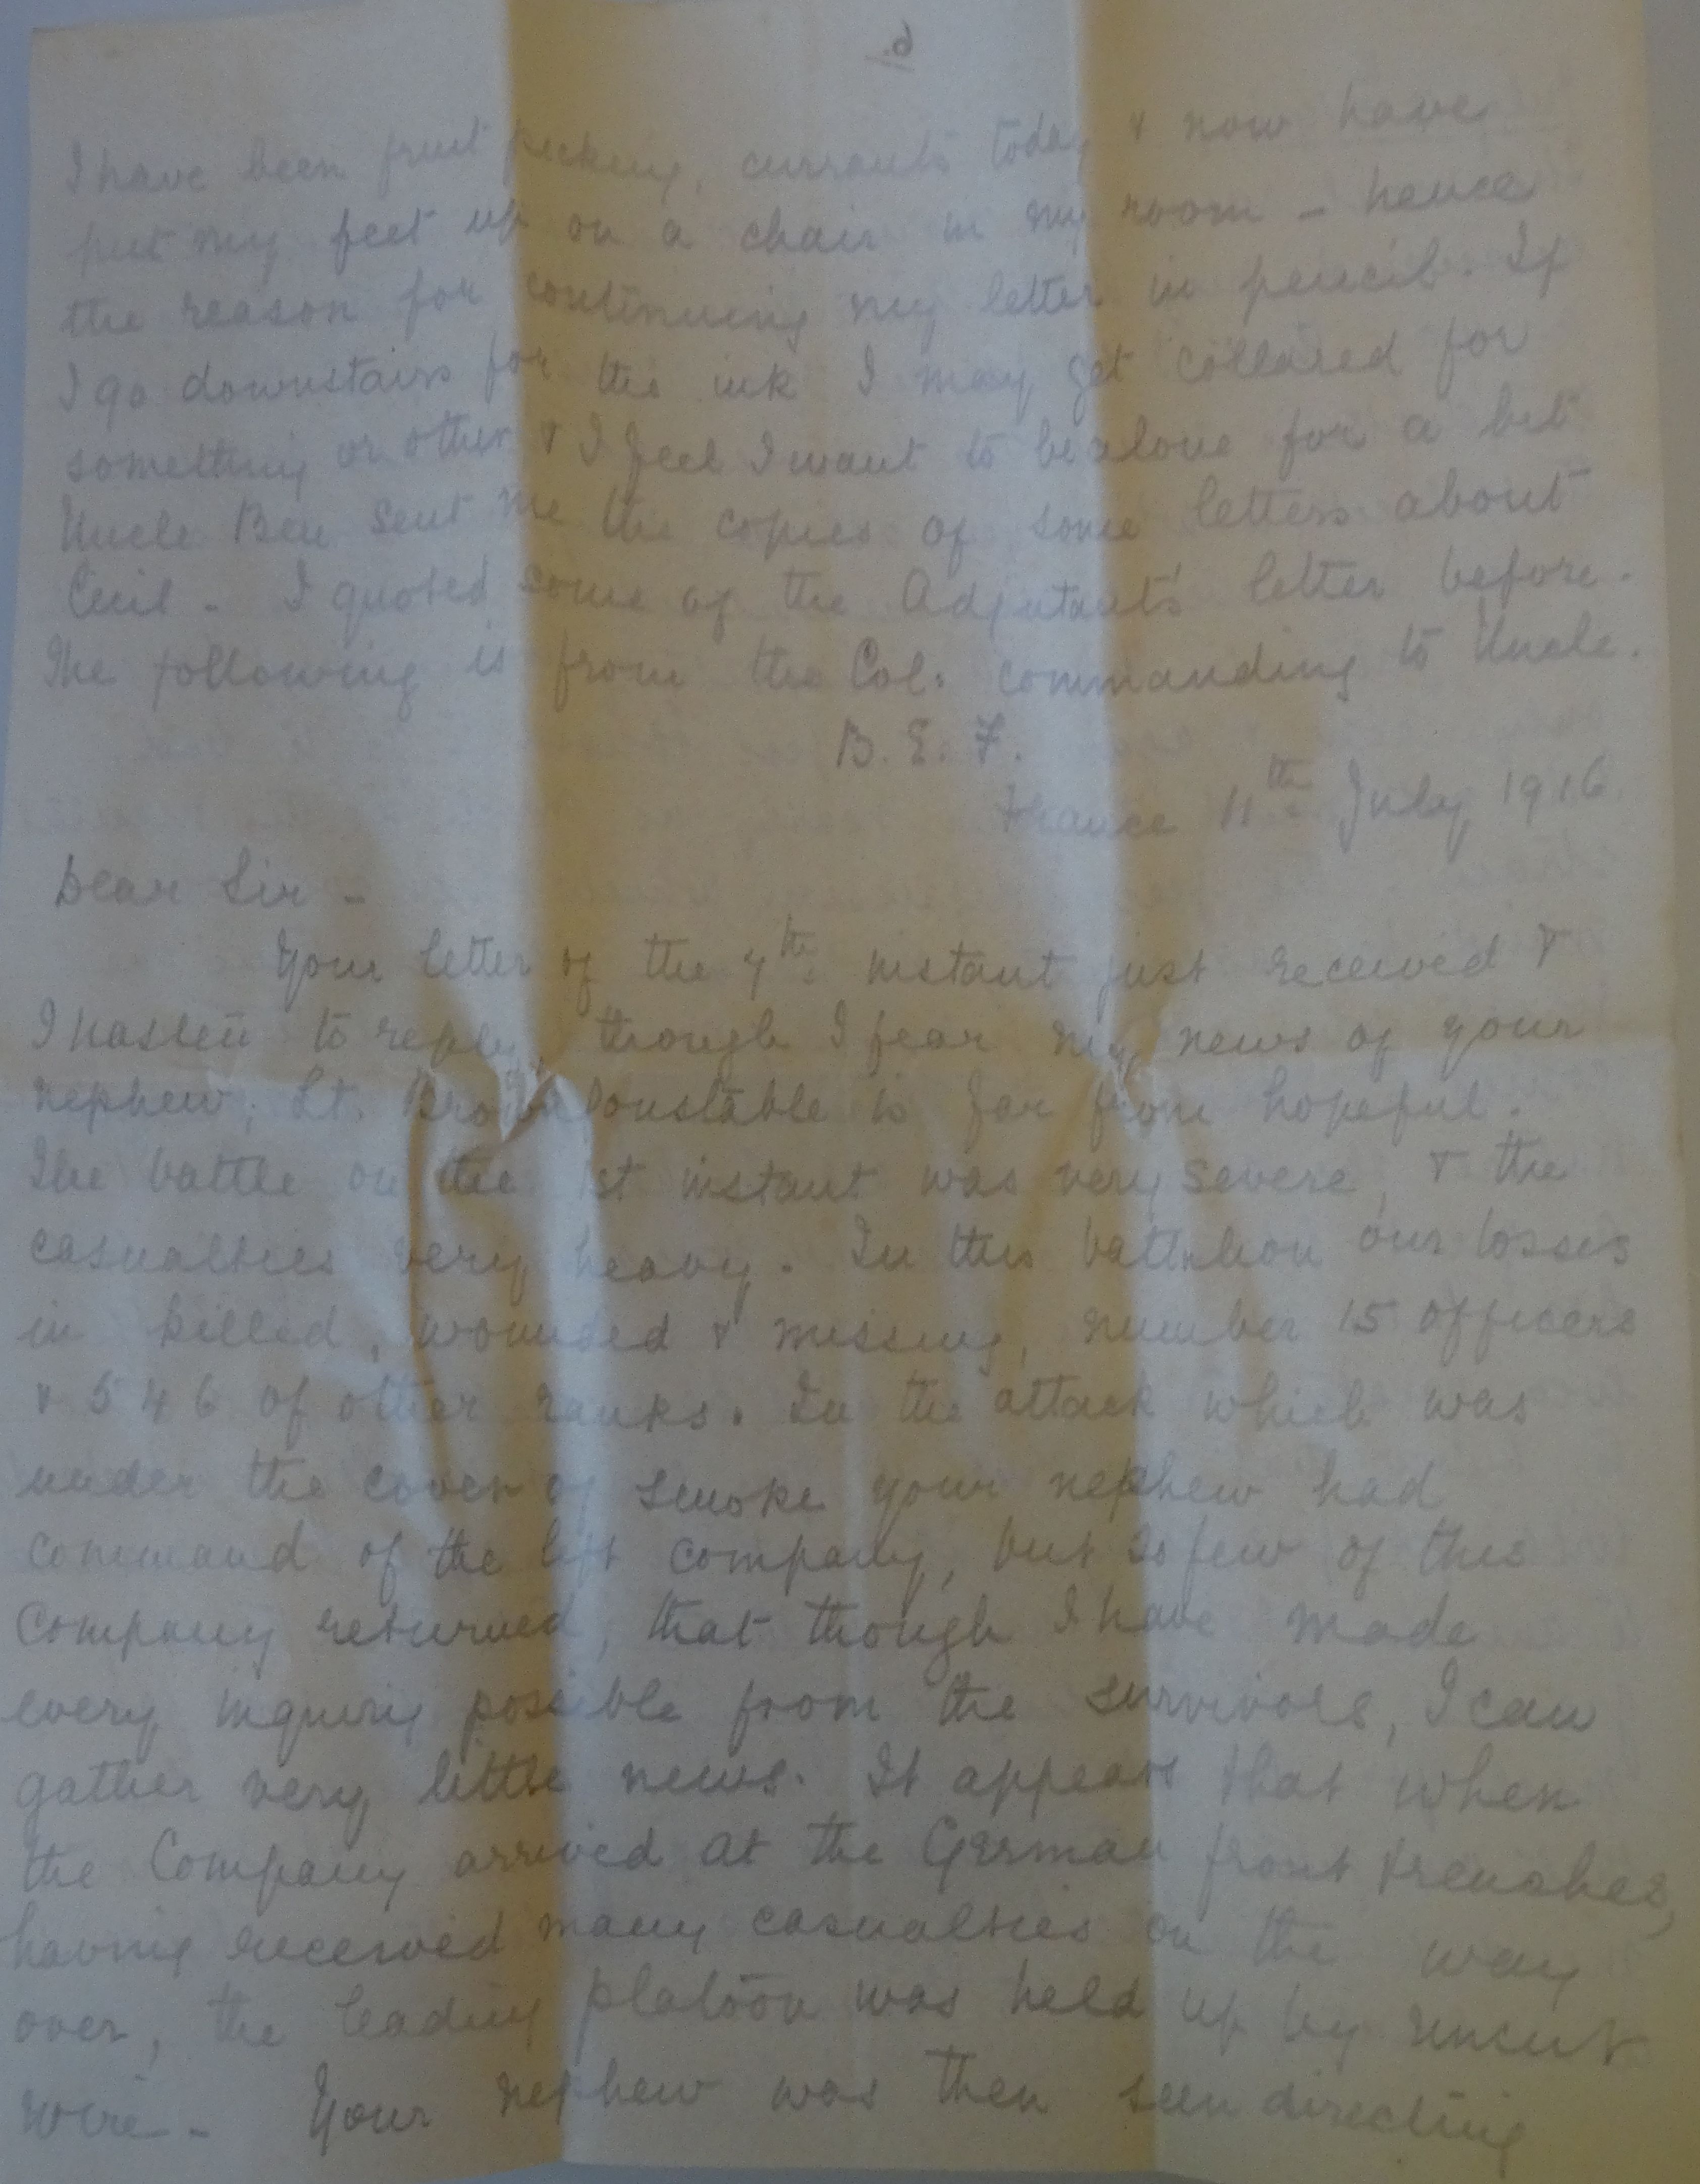 6.
I have been fruit picking, currants today & now have
put my feet up on a chair in my room - hence
the reason for continuing my letter in pencil. If
I go downstairs for the ink I may get collared for
something or other & I feel I want to be alone for a bit
Uncle Ben sent me the copies of some letters about
Cecil - I quoted some of the Adjutant's letter before.
The following is from the Col: commanding to Uncle.
B. E. F.
France 11th July 1916
Dear Sir -
Your letter of the 7th instant just received &
I hasten to reply, though I fear my news of your
nephew, Lt. Brown Constable is far from hopeful.
The battle on the 1st instant was very severe, & the
casualties very heavy. In this battalion our losses
in killed, wounded & missing, number 15 officers
& 546 of other ranks. In the attack which was
under the cover of smoke your nephew had
command of the left company, but so few of this
Company returned, that though I have made
every inquiry possible from the survivors, I can
gather very little news. It appears that when
the Company arrived at the German front trenches,
having received many casualties on the way
over, the leading platoon was held up by uncut
wire - Your nephew was then seen directing